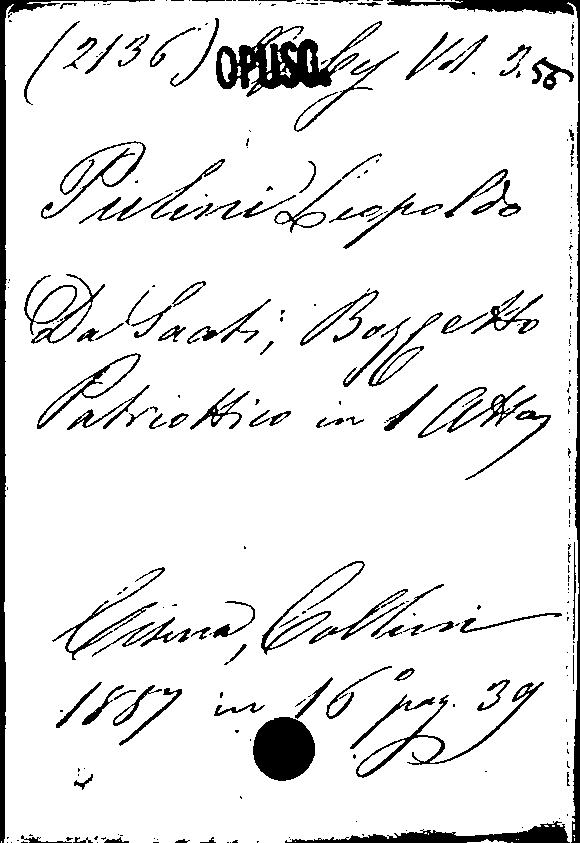 (2136) OPUSC. Vol. 3.56
Pulini Leopoldo
Da Saati; Bozzetto
Patriottico in 1 Atto,
Cesena, Collini
1887 in 16º pag. 39